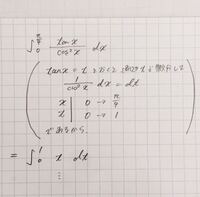 ∫_0^{π/4} tan x / cos² x dx
tan x = t とおくと 両辺を x で微分して
1 / cos² x dx = dt
x | 0 → π/4
t | 0 → 1
であるから
= ∫_0^1 t dt
⋮